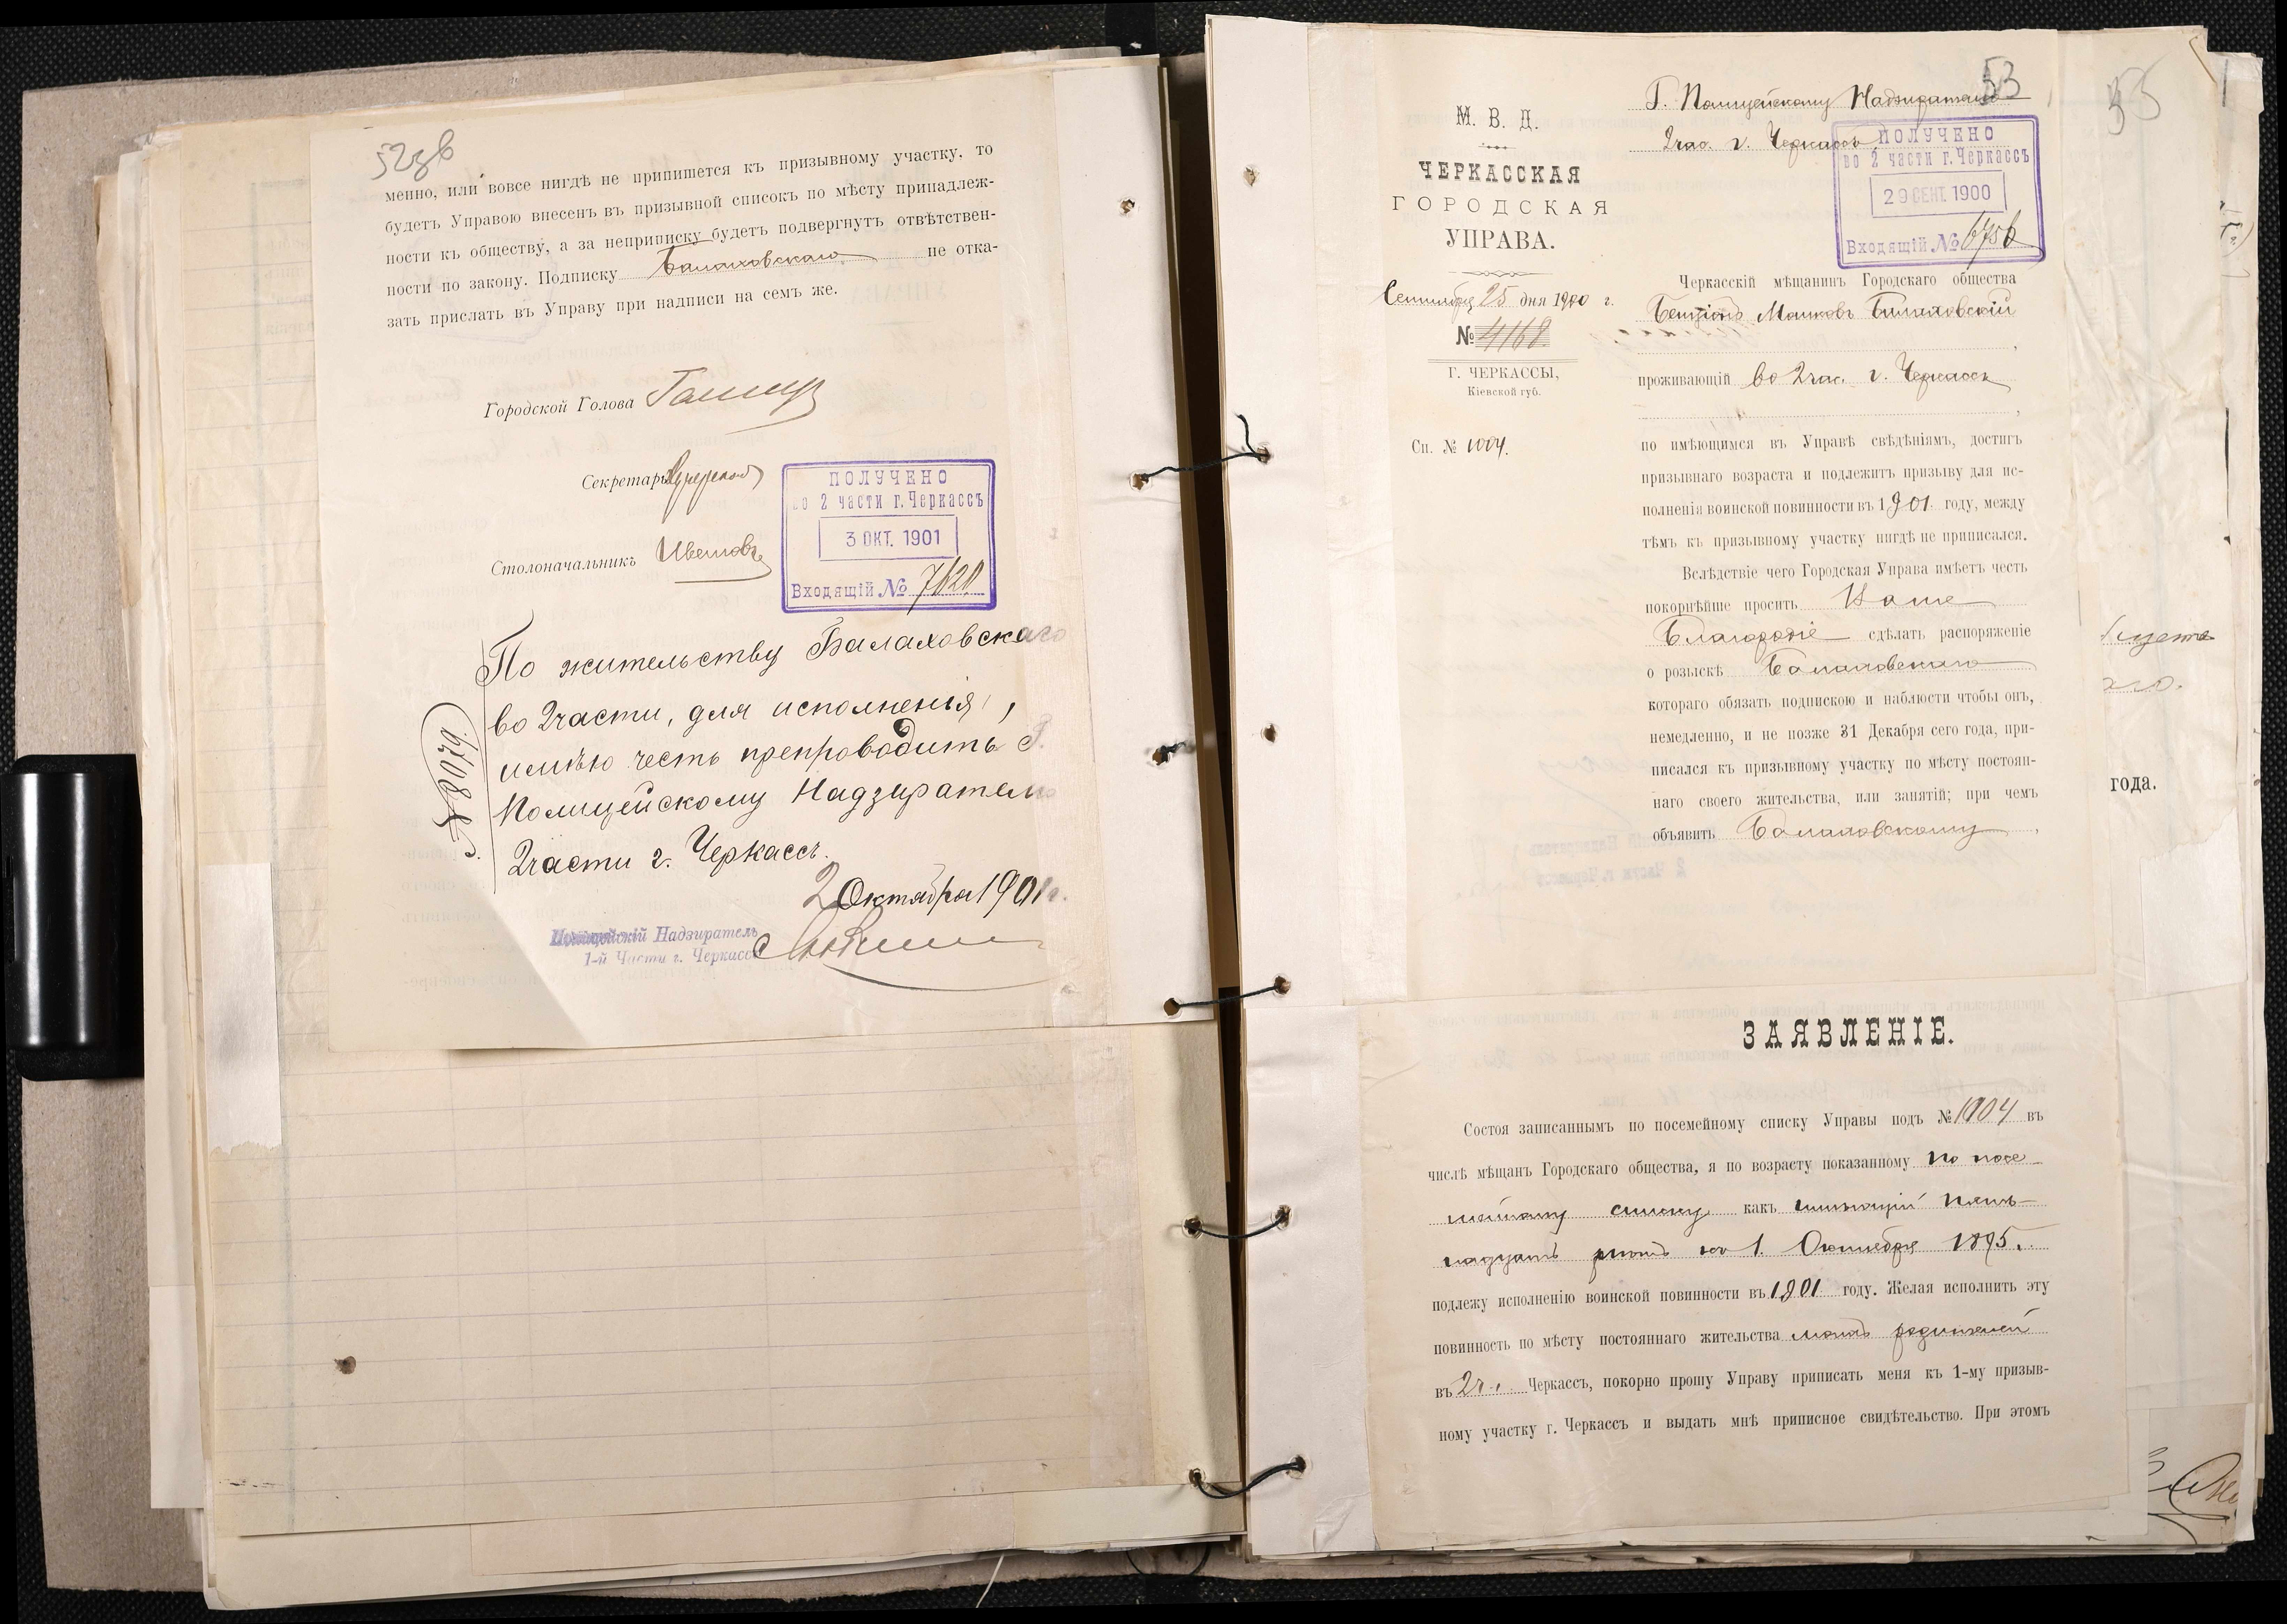 52зв
менно, или вовсе нигдѣ не припишется къ призывному участку, то
будетъ Управою внесенъ въ призывной списокъ по мѣсту принадлеж-
ности къ обществу, а за неприписку будетъ подвергнутъ отвѣтствен-
ности по закону. Подписку Балаховскаго не отка-
зать прислать въ Управу при надписи на семъ же.
Городской Голова
Секретарь
Столоначальникъ
ПОЛУЧЕНО
во 2 части г. Черкассъ
3 ОКТ. 1901
Входящій №
По жительству Балаховскаго
во 2 части, для исполненія,
имѣю честь препроводить Г.
Полицейскому Надзирателю
2 части г. Черкассъ.
2 Октября 1901 г.
№ 8079.
Полицейскій Надзиратель
1-й Части г. Черкассъ
53
М. В. Д.
ЧЕРКАССКАЯ
ГОРОДСКАЯ
УПРАВА.
Сентября 25 дня 1900 г.
№ 4168.
Г. ЧЕРКАССЫ,
Кіевской губ.
Сп. № 1004.
Г. Полицейскому Надзирателю
2 час. г. Черкассъ
ПОЛУЧЕНО
во 2 части г. Черкассъ
29 СЕНТ. 1900
Входящій № 6756
Черкасскій мѣщанинъ Городскаго общества
Бенціонъ Балаховскій
проживающій во 2 час. г. Черкассъ
по имѣющимся въ Управѣ свѣдѣніямъ, достигъ
призывнаго возраста и подлежитъ призыву для ис-
полненія воинской повинности въ 1901 году, между
тѣмъ къ призывному участку нигдѣ не приписался.
Вслѣдствіе чего Городская Управа имѣетъ честь
покорнѣйше просить Ваше
Благородіе сдѣлать распоряженіе
о розыскѣ Балаховскаго
котораго обязать подпискою и наблюсти чтобы онъ,
немедленно, и не позже 31 Декабря сего года, при-
писался къ призывному участку по мѣсту постоян-
наго своего жительства, или занятій; при чемъ
объявить Балаховскому,
ЗАЯВЛЕНІЕ.
Состоя записаннымъ по посемейному списку Управы подъ № 1004 въ
числѣ мѣщанъ Городскаго общества, я по возрасту показанному по посе
мейному списку какъ имѣющій пят-
надцать лѣтъ къ 1 Октября 1895.
подлежу исполненію воинской повинности въ 1901 году. Желая исполнить эту
повинность по мѣсту постояннаго жительства моихъ родителей
въ 2 ч. Черкассъ, покорно прошу Управу приписать меня къ 1-му призыв-
ному участку г. Черкассъ и выдать мнѣ приписное свидѣтельство. При этомъ
55
года.